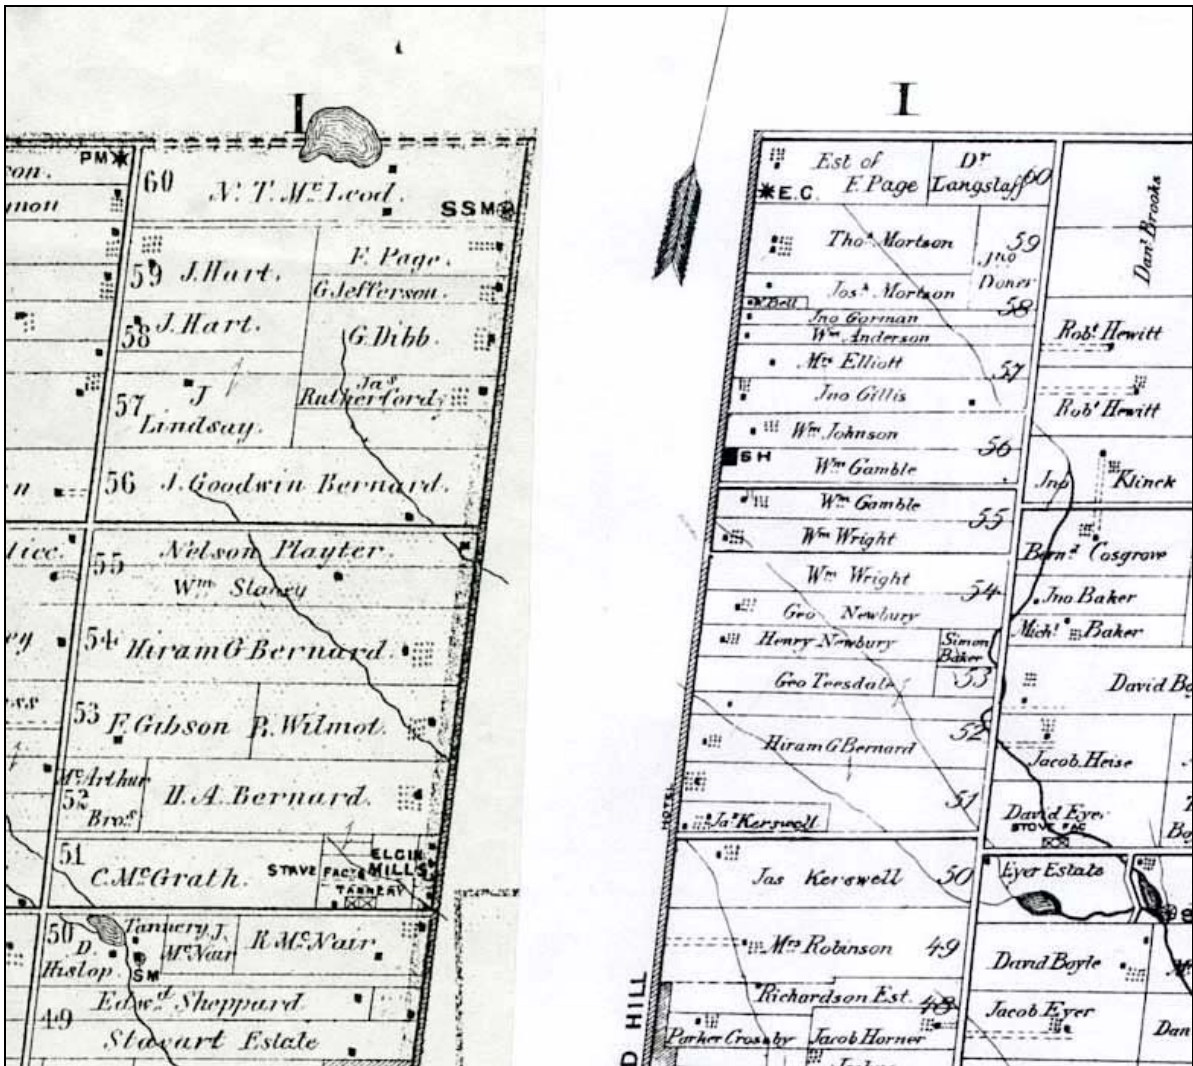 I
I
PM
60
N. T. McLeod.
SSM
59
J. Hart.
F. Page.
G Jefferson.
58
J. Hart.
G. Dibb.
57
J
Lindsay.
Jas
Rutherford
56
J. Goodwin Bernard.
55
Nelson Playter.
Wm Staney
54
Hiram G Bernard.
53
F. Gibson
R. Wilmot.
McArthur
52
Bros
H. A. Bernard.
51
C. McGrath.
STAVE FACTY
ELGIN
MILLS
TANNERY
50
D.
Hislop.
Tannery J.
McNair
SM
R. McNair
49
Edwd Sheppard
Stavart Estate
Est of
F. Page
Dr
Langstaff
60
E.C.
Thos Mortson
59
Jno
Doner
Josh Mortson
W. Bell
58
Jno Gorman
Wm Anderson
Mrs Elliott
57
Jno Gillis
Wm Johnson
56
SH
Wm Gamble
Wm Gamble
55
Wm Wright
Wm Wright
54
Geo Newbury
Henry Newbury
Simon
Baker
Geo Teesdale
53
52
Hiram G Bernard
51
HOTEL
Jas Kerswell
Jas Kerswell
50
Mrs Robinson
49
Richardson Est.
48
Parker Crosby
Jacob Horner
D HILL
Danl Brooks
Robt Hewitt
Robt Hewitt
Jno Klinck
Bernd Cosgrove
Jno Baker
Michl Baker
David Bo
Jacob Heise
David Eyer
STOVE FAC
Eyer Estate
David Boyle
Jacob Eyer
Dan